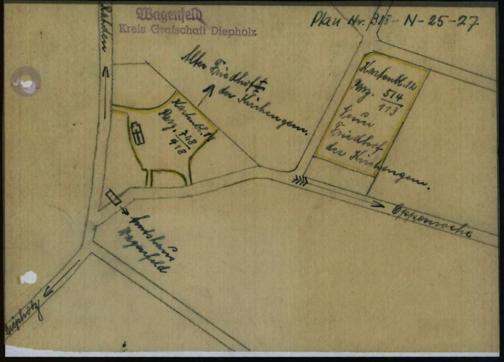 Wagenfeld
Kreis Grafschaft Diepholz
Plan Nr. 318-N-25-27
Rahden
Alter Friedhof
der Kirchengem.
Kartenbl. 12
Parz. 748
918
Kartenbl. 12
Parz. 514
113
Neuer
Friedhof
der Kirchengem.
Oppenwehe
Amtshaus
Wagenfeld
Diepholz